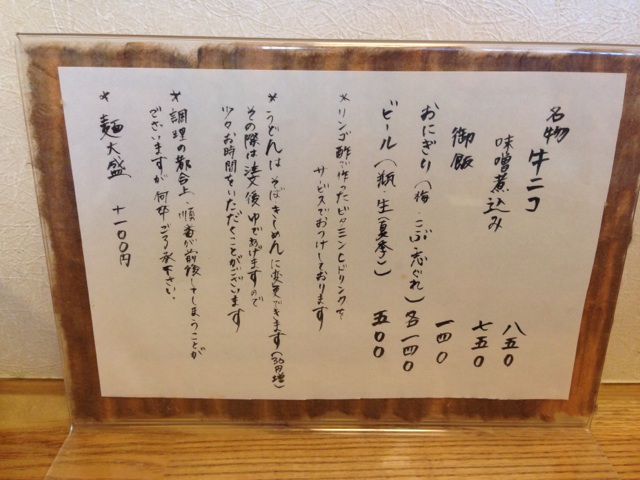 名物 牛ニコ 八五〇
味噌煮込み 七五〇
御飯 一四〇
おにぎり(梅・こぶ・志ぐれ)各一四〇
ビール(瓶・生(夏季)) 五〇〇
*リンゴ酢で作ったビタミンCドリンクを
サービスでおつけしております
*うどんは そば きしめんに変更できます(30円増)
その際は注文後ゆであげますので
少々お時間をいただくことがございます
*調理の都合上、順番が前後してしまうことが
ございますが何卒ご了承下さい。
*麺大盛 +一〇〇円